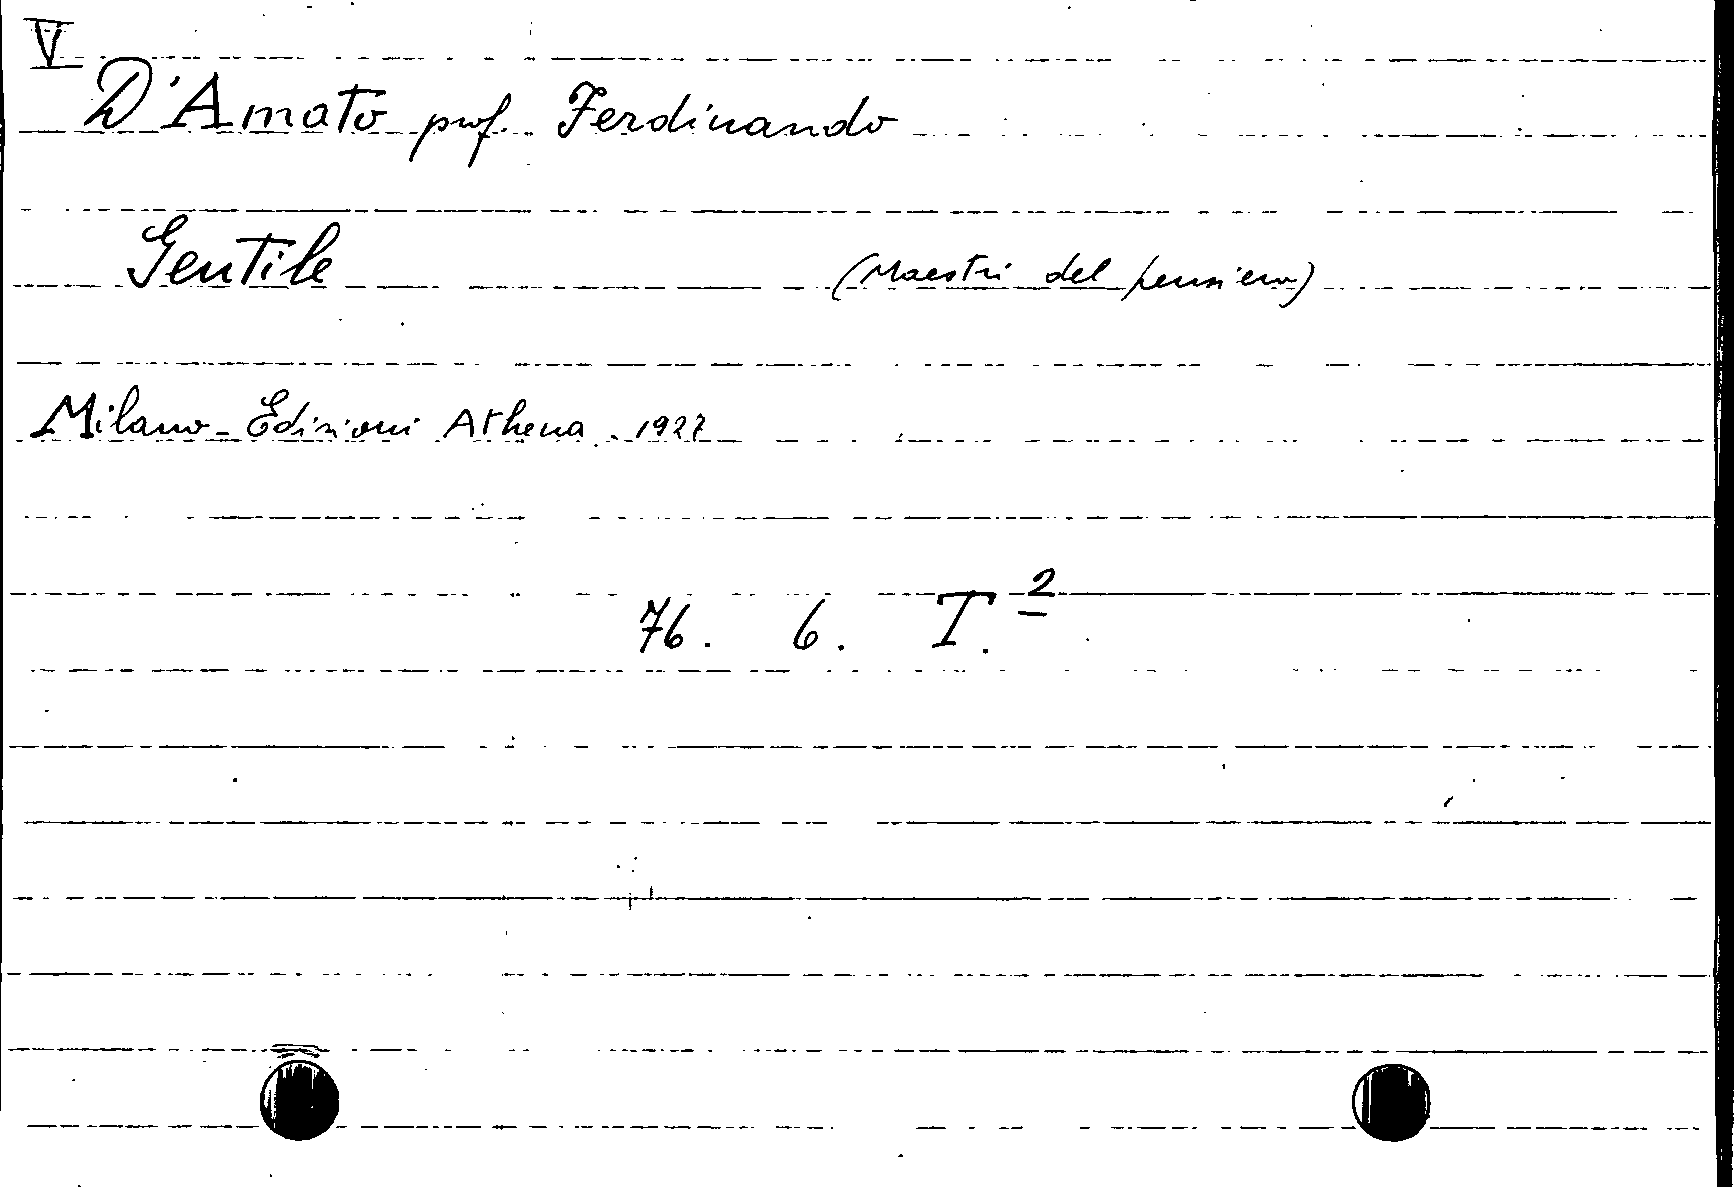 V
D'Amato prof. Ferdinando
Gentile (Maestri del pensiero)
Milano - Edizioni Athena. 1927
76. 6. T.2